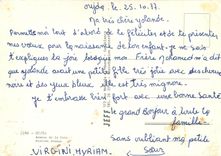 oujda le. 25.10.77.
Ma très chère yolande.
Permets moi tout d'abord de te féliciter et de te présenter
mes voeux pour la naissance de ton enfant. je ne sais
t'expliquer la joie lorsque mon Frère Mohamed m'a dit
que yolande avait une petite fille très jolie avec des cheveux
noirs et des yeux bleus. elle est très mignonne.
je t'embrasse bien fort avec une bonne Santé
le grand Bonjour à toute la
famille
sans oublier ma petite
Sœur
VIRGINI, MYRIAM.